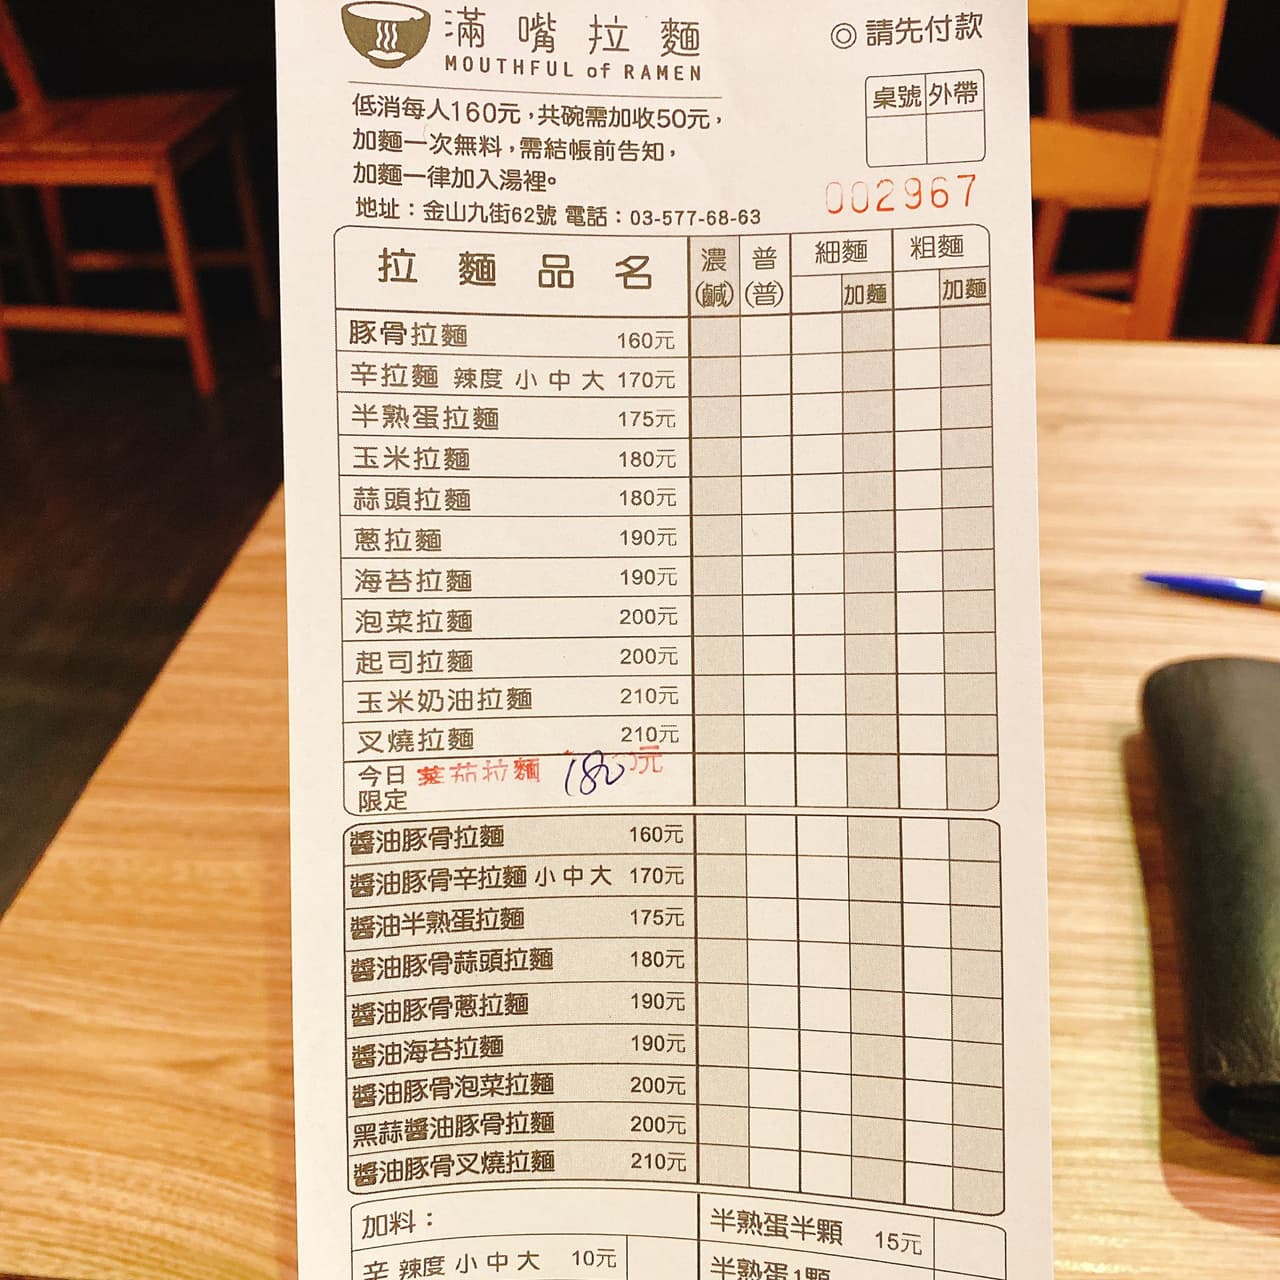 滿嘴拉麵
MOUTHFUL of RAMEN
◎ 請先付款
低消每人160元，共碗需加收50元，
加麵一次無料，需結帳前告知，
加麵一律加入湯裡。
地址：金山九街62號 電話：03-577-68-63
桌號 外帶
002967
拉麵品名 濃(鹹) 普(普) 細麵 加麵 粗麵 加麵
豚骨拉麵 160元
辛拉麵 辣度 小 中 大 170元
半熟蛋拉麵 175元
玉米拉麵 180元
蒜頭拉麵 180元
蔥拉麵 190元
海苔拉麵 190元
泡菜拉麵 200元
起司拉麵 200元
玉米奶油拉麵 210元
叉燒拉麵 210元
今日限定 蕃茄拉麵 180 元
醬油豚骨拉麵 160元
醬油豚骨辛拉麵 小 中 大 170元
醬油半熟蛋拉麵 175元
醬油豚骨蒜頭拉麵 180元
醬油豚骨蔥拉麵 190元
醬油海苔拉麵 190元
醬油豚骨泡菜拉麵 200元
黑蒜醬油豚骨拉麵 200元
醬油豚骨叉燒拉麵 210元
加料：
半熟蛋半顆 15元
辛 辣度 小 中 大 10元
半熟蛋1顆